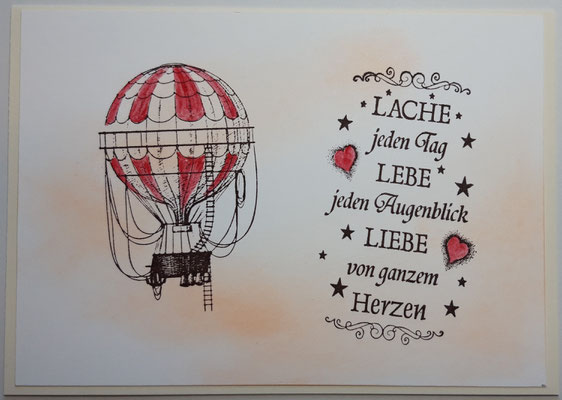 LACHE
jeden Tag
LEBE
jeden Augenblick
LIEBE
von ganzem
Herzen